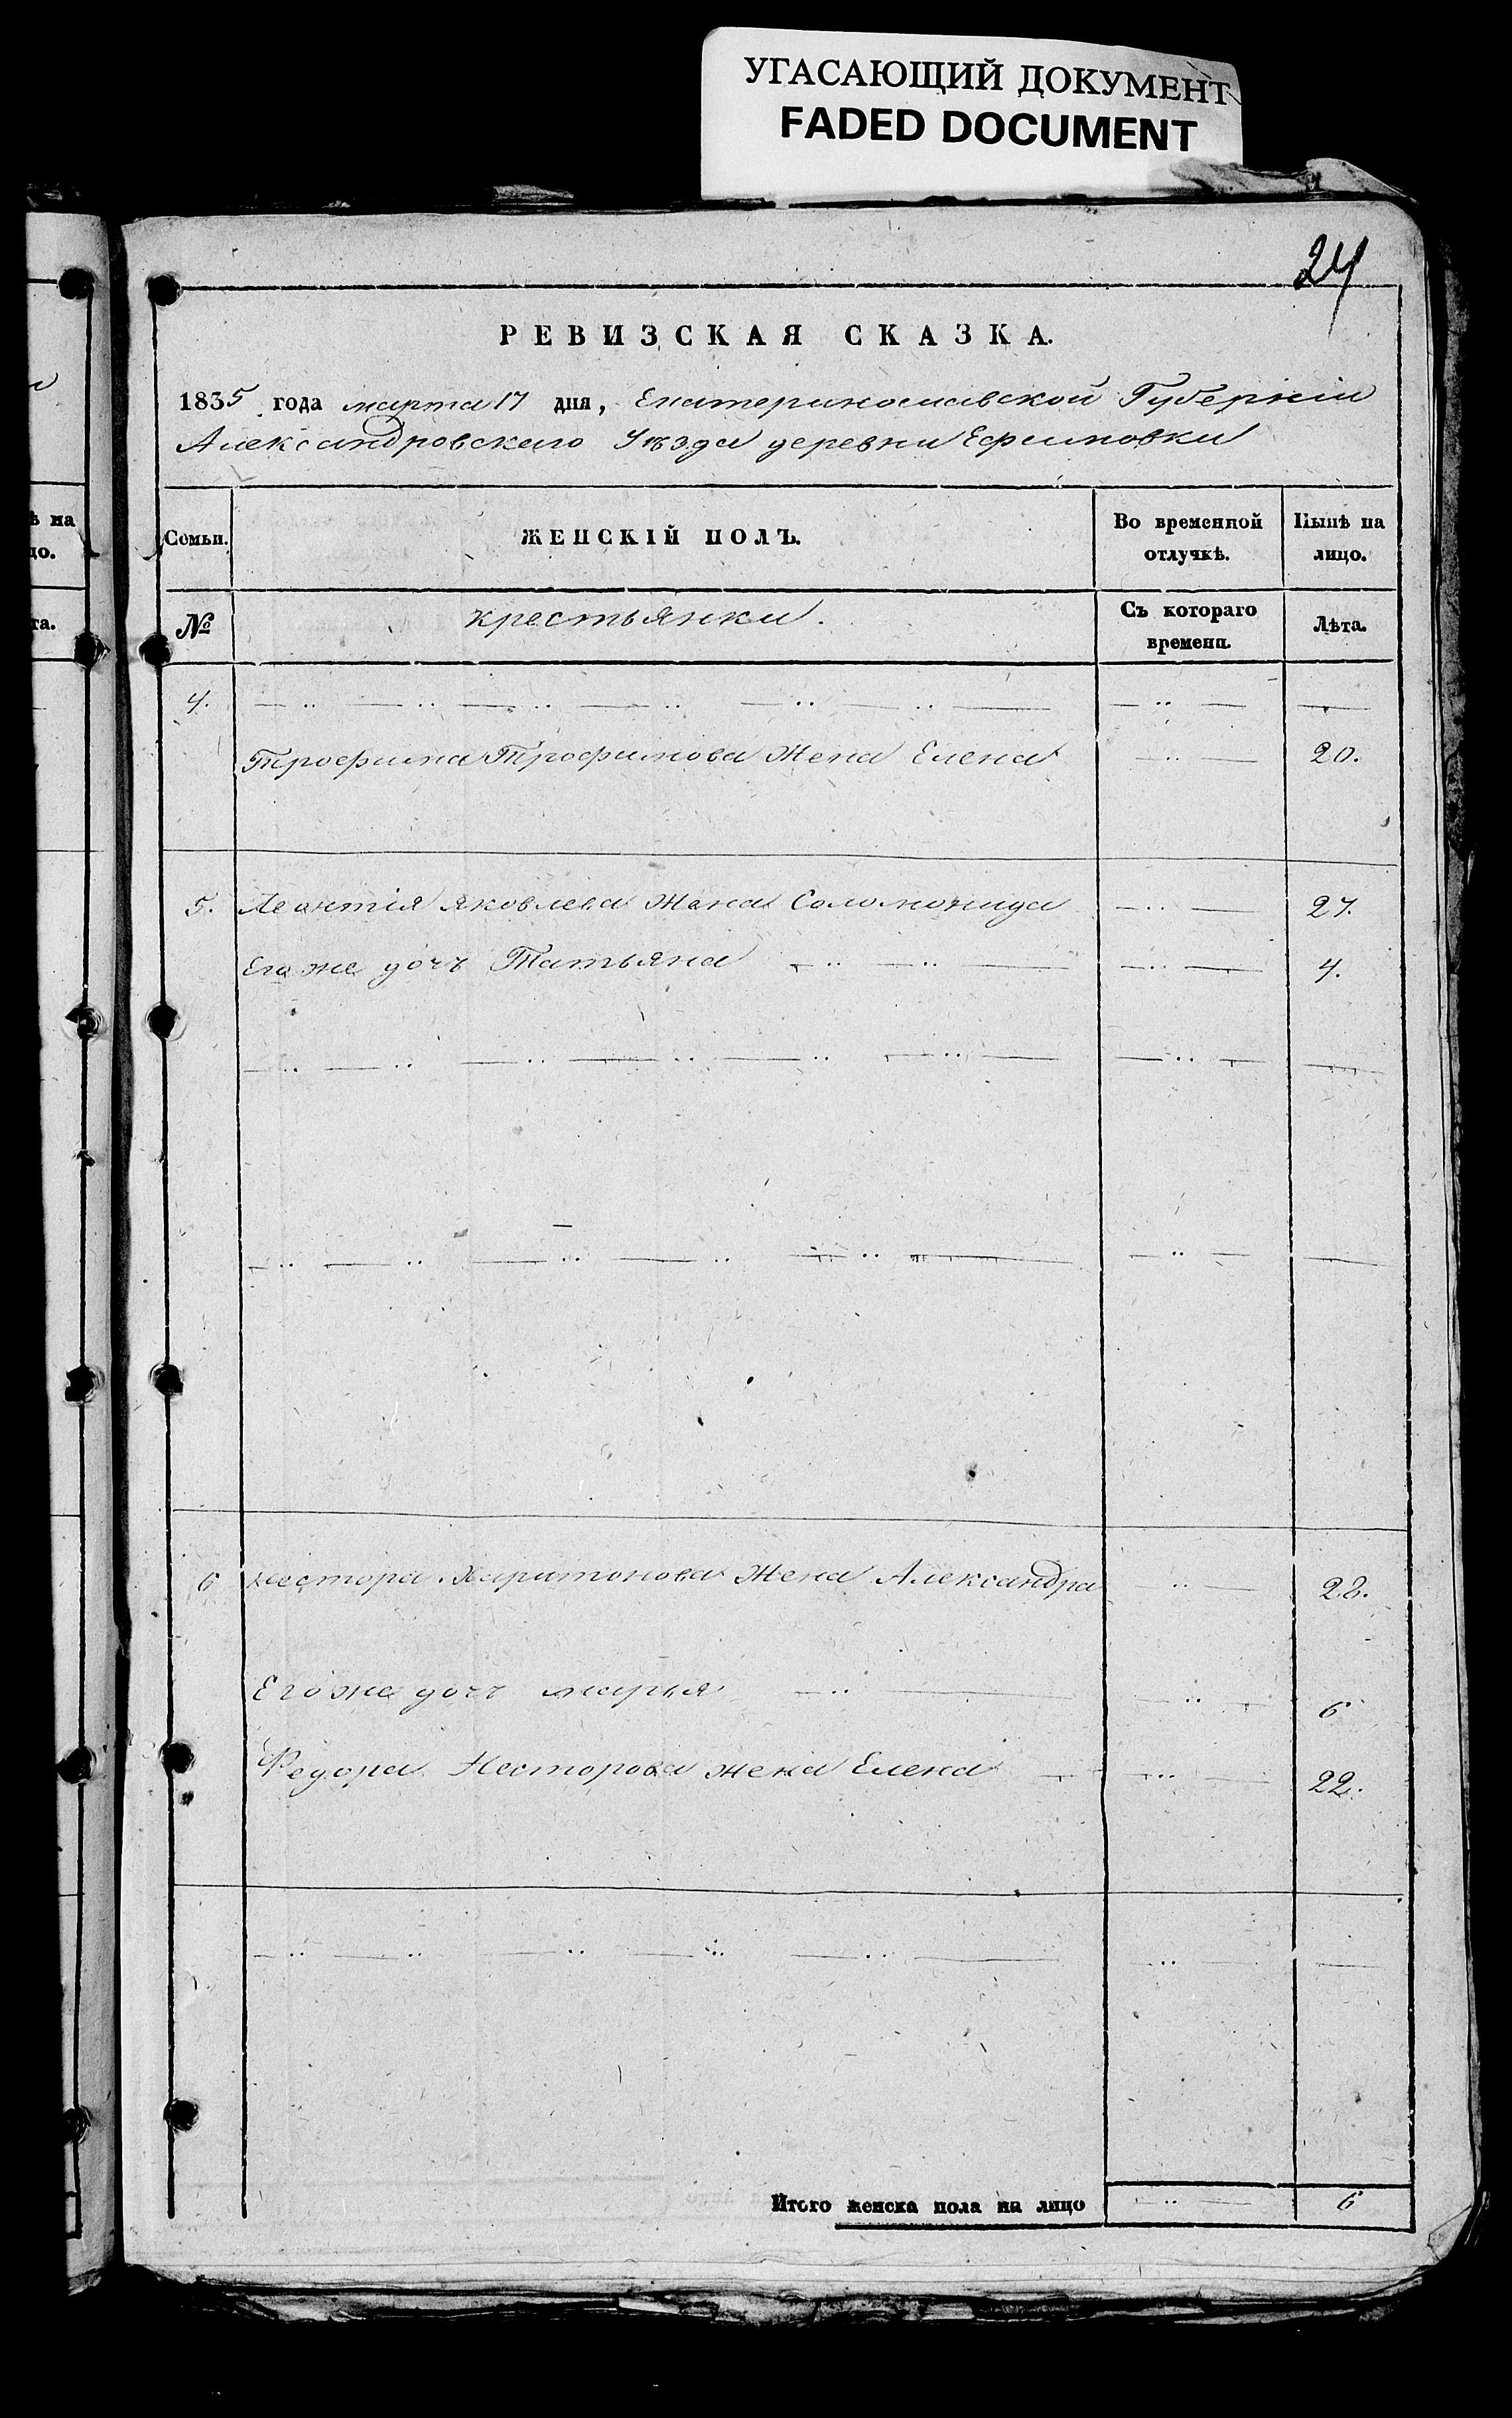 УГАСАЮЩИЙ ДОКУМЕНТ
FADED DOCUMENT
24
РЕВИЗСКАЯ СКАЗКА.
1835 года марта 17 дня, Екатеринославской Губерніи
Александровскаго Уѣзда деревни Ефимовки
Семьи. ЖЕНСКІЙ ПОЛЪ. Во временной отлучкѣ. Нынѣ на лицо.
№ крестьянки. Съ котораго времени. Лѣта.
4.
Трофима Трофимова Жена Елена 20.
5. Леонтія Яковлева Жена Соломонида 27.
Его же дочь Татьяна 4.
6 Нестора Харитонова Жена Александра 28.
Его же дочь марья 6
Федора Несторова жена Елена 22.
Итого женска пола на лицо 6
ѣ на
цо.
та.